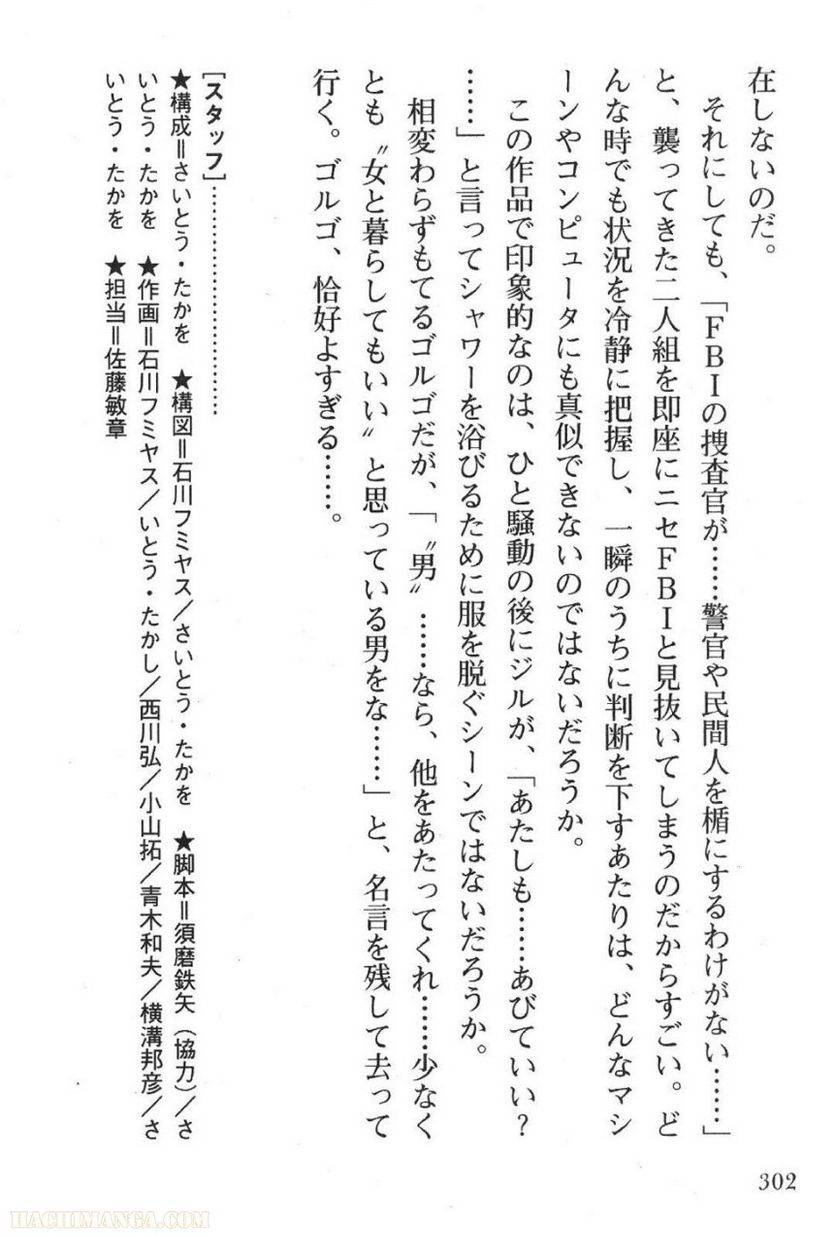 在しないのだ。
それにしても、「FBIの捜査官が……警官や民間人を楯にするわけがない……」
と、襲ってきた二人組を即座にニセFBIと見抜いてしまうのだからすごい。ど
んな時でも状況を冷静に把握し、一瞬のうちに判断を下すあたりは、どんなマシ
ーンやコンピュータにも真似できないのではないだろうか。
この作品で印象的なのは、ひと騒動の後にジルが、「あたしも……あびていい?
……」と言ってシャワーを浴びるために服を脱ぐシーンではないだろうか。
相変わらずもてるゴルゴだが、「〝男〟……なら、他をあたってくれ……少なく
とも〝女と暮らしてもいい〟と思っている男をな……」と、名言を残して去って
行く。ゴルゴ、恰好よすぎる……。
[スタッフ]…………………………
★構成=さいとう・たかを ★構図=石川フミヤス/さいとう・たかを ★脚本=須磨鉄矢(協力)/さ
いとう・たかを ★作画=石川フミヤス/いとう・たかし/西川弘/小山拓/青木和夫/横溝邦彦/さ
いとう・たかを ★担当=佐藤敏章
302
HACHIMANGA.COM